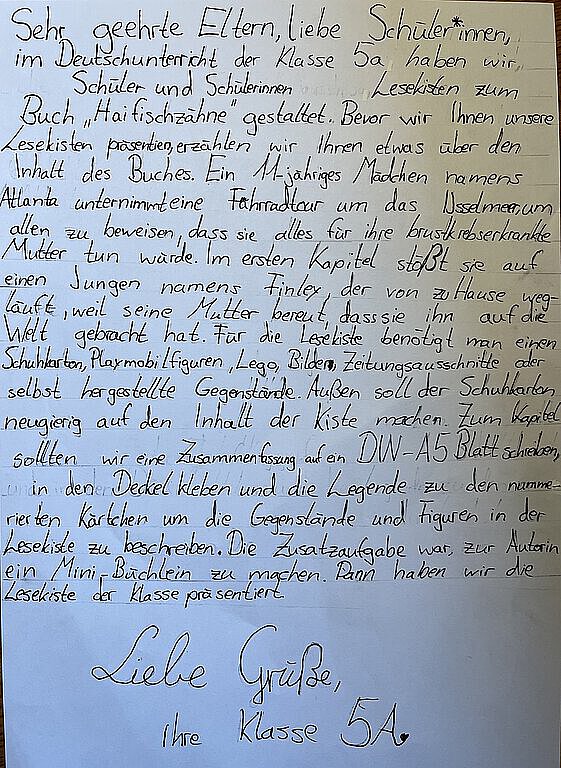 Sehr geehrte Eltern, liebe Schüler*innen,
im Deutschunterricht der Klasse 5a haben wir,
Schüler und Schülerinnen Lesekisten zum
Buch „Haifischzähne" gestaltet. Bevor wir Ihnen unsere
Lesekisten präsentien, erzählen wir Ihnen etwas über den
Inhalt des Buches. Ein 11-jähriges Mädchen namens
Atlanta unternimmt eine Fahrradtour um das IJsselmeer, um
allen zu beweisen, dass sie alles für ihre brustkrebserkrankte
Mutter tun würde. Im ersten Kapitel stößt sie auf
einen Jungen namens Finley, der von zu Hause weg-
läuft, weil seine Mutter bereut, dass sie ihn auf die
Welt gebracht hat. Für die Lesekiste benötigt man einen
Schuhkarton, Playmobilfiguren, Lego, Bilder, Zeitungsausschnitte oder
selbst hergestellte Gegenstände. Außen soll der Schuhkarton
neugierig auf den Inhalt der Kiste machen. Zum Kapitel
sollten wir eine Zusammenfassung auf ein DW-A5 Blatt schreiben,
in den Deckel kleben und die Legende zu den numme-
rierten Kärtchen um die Gegenstände und Figuren in der
Lesekiste zu beschreiben. Die Zusatzaufgabe war, zur Autorin
ein Mini-Büchlein zu machen. Dann haben wir die
Lesekiste der Klasse präsentiert.
Liebe Grüße,
ihre Klasse 5A.